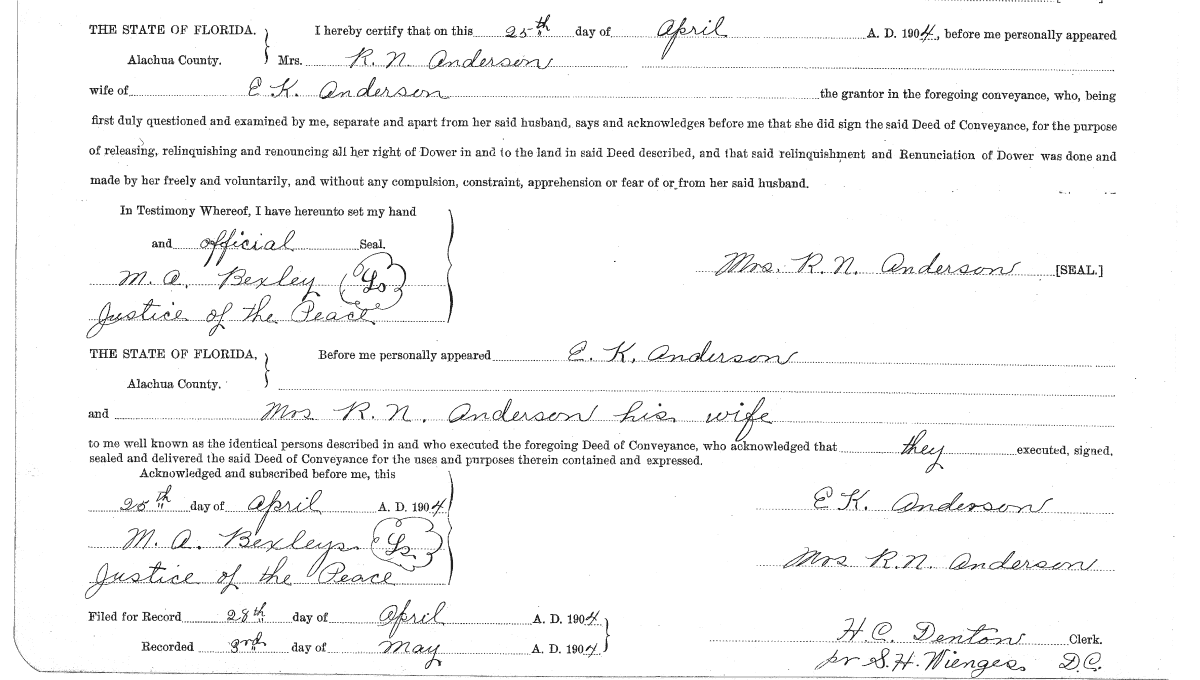 THE STATE OF FLORIDA. } I hereby certify that on this 25th day of April A. D. 1904, before me personally appeared
Alachua County. Mrs. R. N. Anderson
wife of E K. Anderson the grantor in the foregoing conveyance, who, being
first duly questioned and examined by me, separate and apart from her said husband, says and acknowledges before me that she did sign the said Deed of Conveyance, for the purpose
of releasing, relinquishing and renouncing all her right of Dower in and to the land in said Deed described, and that said relinquishment and Renunciation of Dower was done and
made by her freely and voluntarily, and without any compulsion, constraint, apprehension or fear of or from her said husband.
In Testimony Whereof, I have hereunto set my hand
and official Seal.
Mrs. R. N. Anderson [SEAL.]
M. A. Bexley Ls
Justice of the Peace
THE STATE OF FLORIDA, } Before me personally appeared E. K. Anderson
Alachua County.
and Mrs R. N. Anderson his wife
to me well known as the identical persons described in and who executed the foregoing Deed of Conveyance, who acknowledged that they executed, signed,
sealed and delivered the said Deed of Conveyance for the uses and purposes therein contained and expressed.
Acknowledged and subscribed before me, this
25th day of April A. D. 1904
E K. Anderson
M. A. Bexleys. Ls.
Mrs R.N. Anderson
Justice of the Peace
Filed for Record 28th day of April A. D. 1904
H. C. Denton Clerk.
Recorded 3rd day of May A. D. 1904
pr S. H. Wienges D.C.